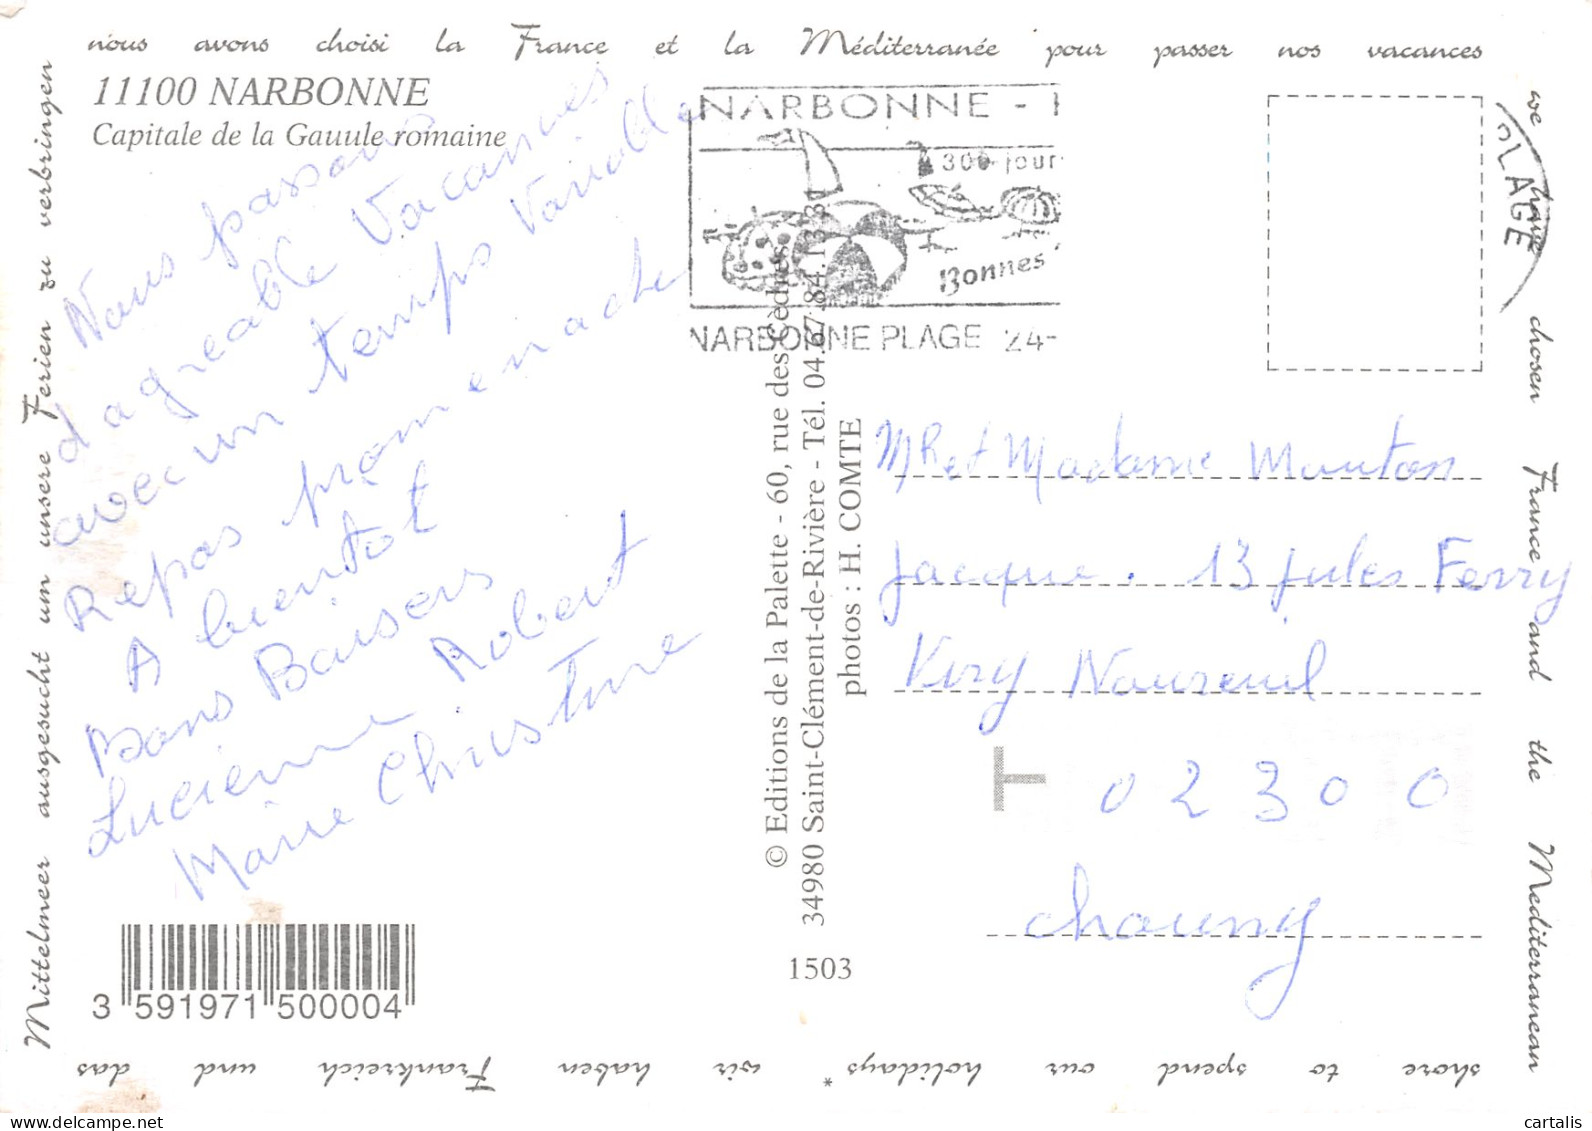 nous avons choisi la France et la Méditerranée pour passer nos vacances
11100 NARBONNE
Capitale de la Gauule romaine
Nous passons
d agreable Vacances
avec un temps Variable
Repas promen ache
A bientot
Bons Baisers
Lucienne Robert
Marie Christine
3 591971 500004
NARBONNE -
300 jour
Bonnes
NARBONNE PLAGE 24-
PLAGE
© Editions de la Palette - 60, rue des Cèdres
34980 Saint-Clément-de-Rivière - Tél. 04.67.84.13.31
photos : H. COMTE
1503
MR et Madame Mouton
Jacque. 13 Jules Ferry
Viry Noureuil
T
02300
chauny
we have chosen France and the Mediterranean
shore to spend our holidays *
wir haben Frankreich und das
Mittelmeer ausgesucht um unsere Ferien zu verbringen
cartalis
delcampe.net